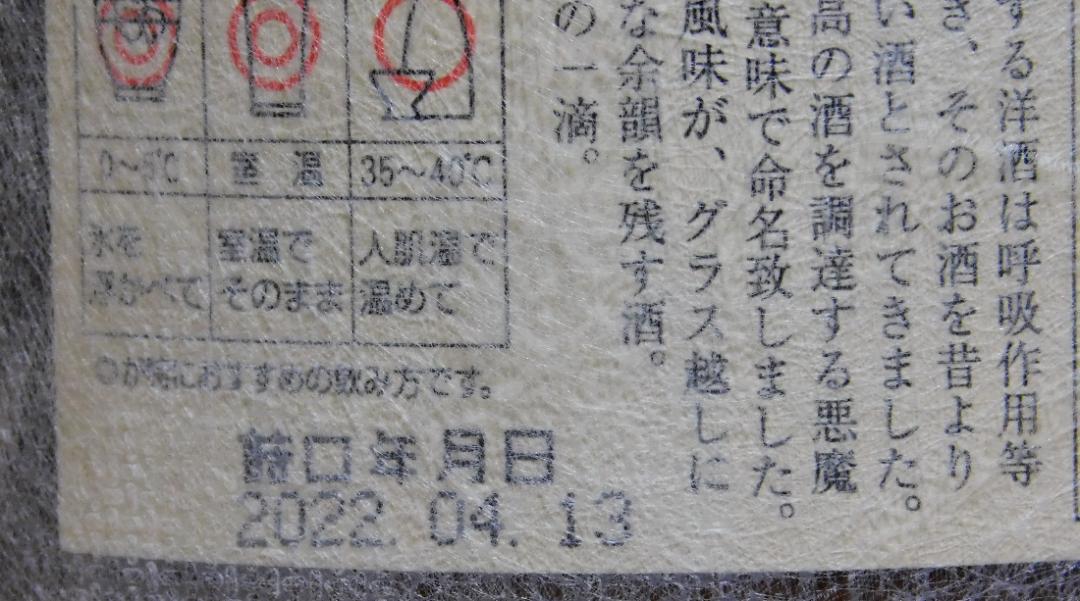 する洋酒は呼吸作用等
き、そのお酒を昔より
い酒とされてきました。
高の酒を調達する悪魔
意味で命名致しました。
風味が、グラス越しに
な余韻を残す酒。
の一滴。
0～5℃ 室温 35～40℃
氷を 室温で 人肌温で
浮かべて そのまま 温めて
◎が特におすすめの飲み方です。
詰口年月日
2022. 04. 13